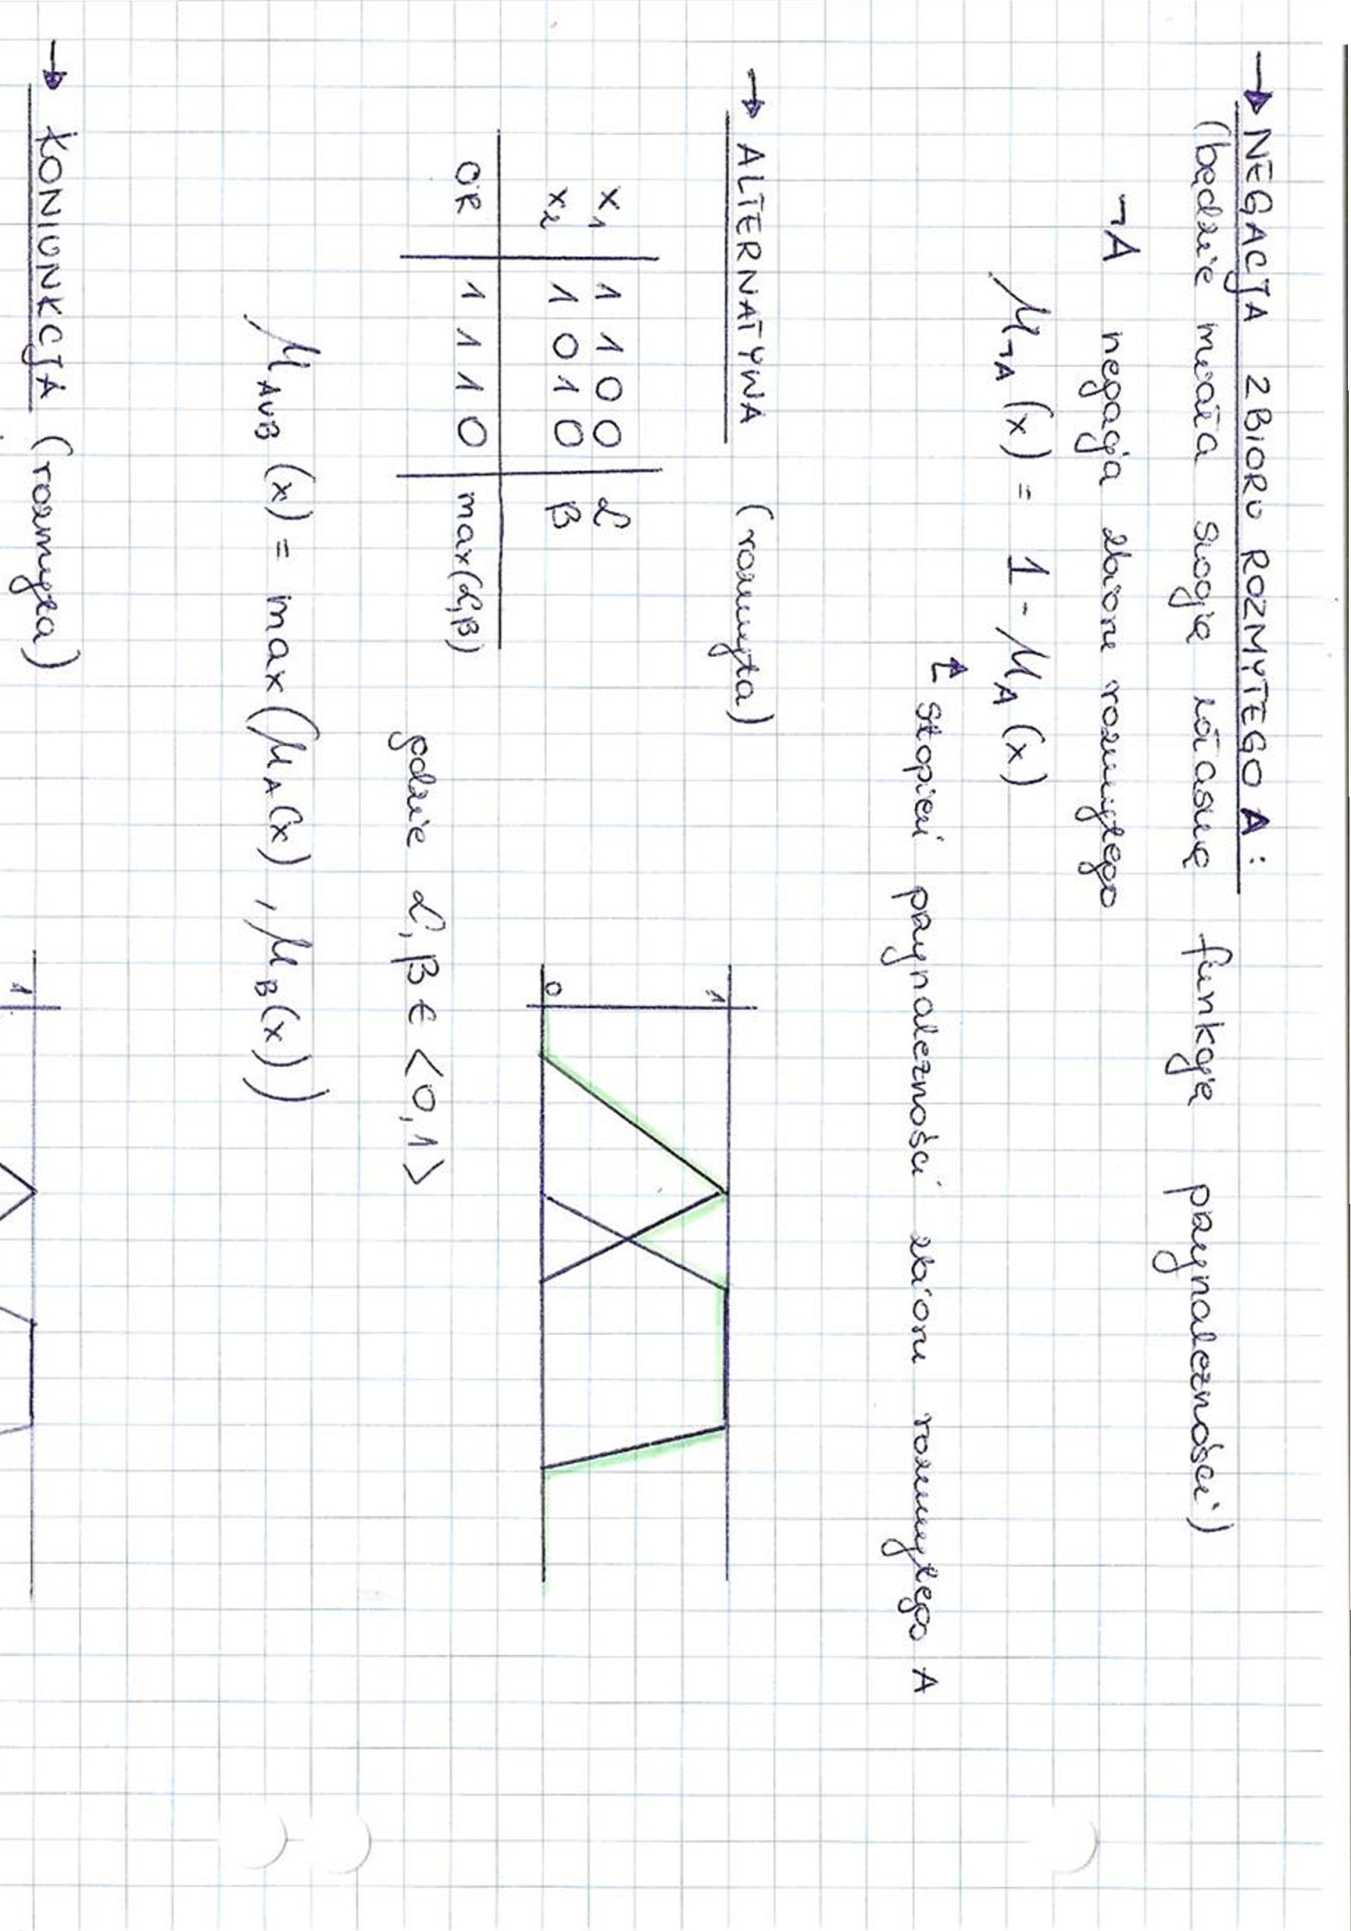 → NEGACJA ZBIORU ROZMYTEGO A:
(będzie miała swoją własną funkcję przynależności)
¬A negacja zbioru rozmytego
μ¬A (x) = 1 - μA (x)
↑ stopień przynależności zbioru rozmytego A
→ ALTERNATYWA (rozmyta)
x1 1 1 0 0 α
x2 1 0 1 0 β
OR 1 1 1 0 max(α,β)
1
0
gdzie α, β ∈ <0,1>
μA∪B (x) = max(μA(x), μB(x))
→ KONIUNKCJA (rozmyta)
1